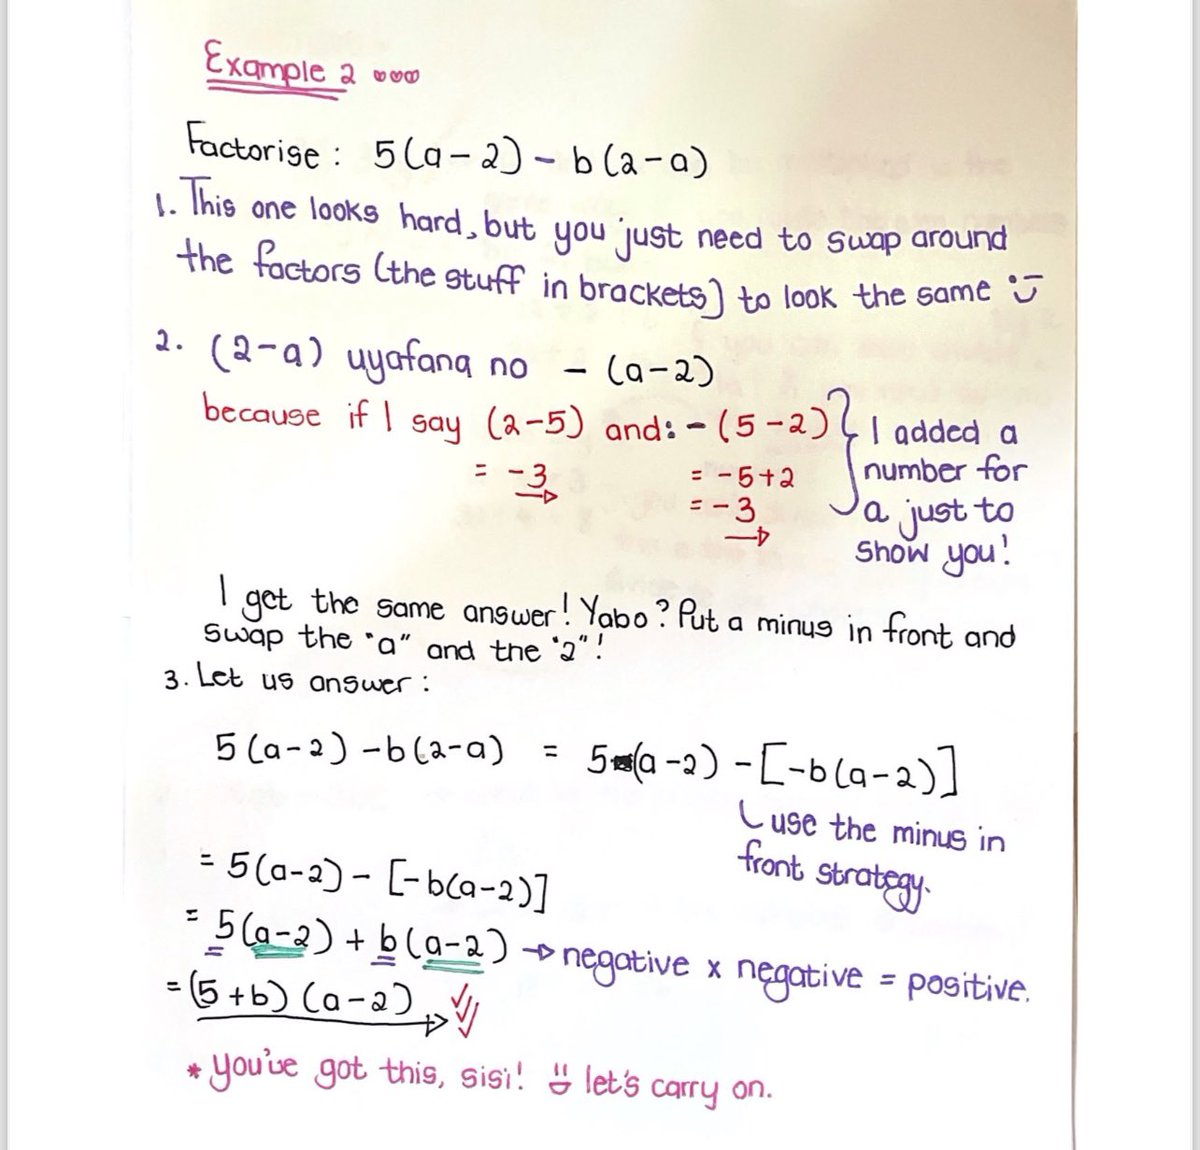 Example 2
Factorise : 5(a-2)-b(2-a)
1. This one looks hard, but you just need to swap around
the factors (the stuff in brackets) to look the same :)
2. (2-a) uyafana no - (a-2)
because if I say (2-5) and: -(5-2) } I added a
= -3 = -5+2 number for
= -3 a just to
show you!
I get the same answer! Yabo? Put a minus in front and
swap the "a" and the "2"!
3. Let us answer :
5(a-2)-b(2-a) = 5(a-2)-[-b(a-2)]
use the minus in
front strategy.
= 5(a-2)-[-b(a-2)]
= 5(a-2)+b(a-2) → negative x negative = positive.
= (5+b)(a-2)
* you've got this, sisi! let's carry on.